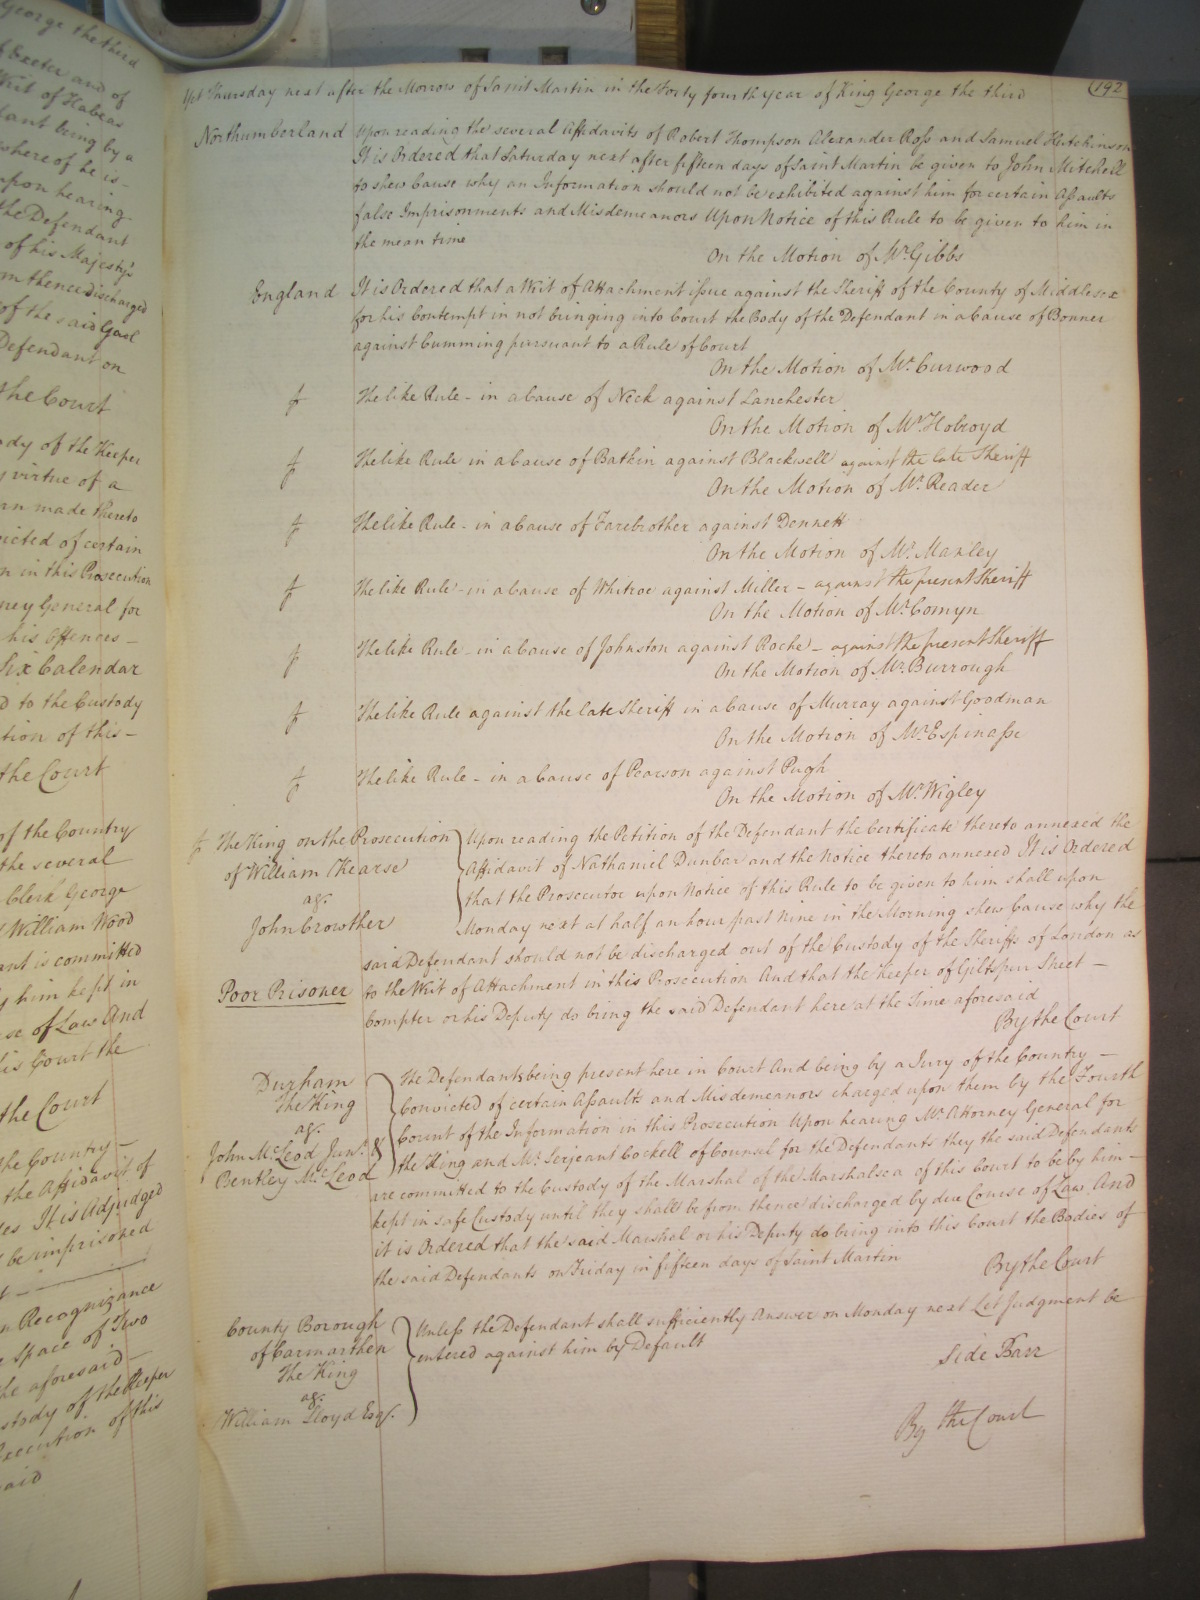 George the third
of Exeter and of
Writ of Habeas
dant being by a
whereof he is -
upon hearing
the Defendant
of his Majesty's
from thence discharged
of the said Gaol
Defendant on
the Court
ady of the Keeper
virtue of a
rn made thereto
icted of certain
n in this Prosecution
ney General for
his Offences -
Six Calendar
d to the Custody
tion of this -
the Court
of the Country
the several
Clerk George
William Wood
ant is committed
y him kept in
se of Law And
is Court the
the Court
the Country -
the Affidavit of
es It is Adjudged
be imprisoned
n Recognizance
e Space of Two
the aforesaid
stody of the Keeper
Execution of this
said
Yet Thursday next after the Morrow of Saint Martin in the Forty fourth year of King George the third
(192
Northumberland Upon reading the several Affidavits of Robert Thompson Alexander Ross and Samuel Hutchinson
It is Ordered that Saturday next after fifteen days of Saint Martin be given to John Mitchell
to shew Cause why an Information should not be exhibited against him for certain Assaults
false Imprisonments and Misdemeanors Upon Notice of this Rule to be given to him in
the mean time
On the Motion of Mr. Gibbs
England It is Ordered that a Writ of Attachment issue against the Sheriff of the County of Middlesex
for his Contempt in not bringing into Court the Body of the Defendant in a Cause of Bonner
against Cumming pursuant to a Rule of Court
On the Motion of Mr. Curwood
The like Rule - in a Cause of Neck against Lanchester
On the Motion of Mr. Holroyd
The like Rule in a Cause of Batkin against Blackwell against the late Sheriff
On the Motion of Mr. Reader
The like Rule - in a Cause of Farebrother against Dennett
On the Motion of Mr. Manley
The like Rule - in a Cause of Whitroe against Miller - against the present Sheriff
On the Motion of Mr. Comyn
The like Rule - in a Cause of Johnston against Roche - against the present Sheriff
On the Motion of Mr. Burrough
The like Rule against the late Sheriff in a Cause of Murray against Goodman
On the Motion of Mr. Espinasse
The like Rule - in a Cause of Pearson against Pugh
On the Motion of Mr. Wigley
The King on the Prosecution
of William Kearse
agt.
John Crowther
Poor Prisoner
Upon reading the Petition of the Defendant the Certificate thereto annexed the
Affidavit of Nathaniel Dunbar and the Notice thereto annexed It is Ordered
that the Prosecutor upon Notice of this Rule to be given to him shall upon
Monday next at half an hour past Nine in the Morning shew Cause why the
said Defendant should not be discharged out of the Custody of the Sheriffs of London as
to the Writ of Attachment in this Prosecution And that the Keeper of Giltspur Street -
Compter or his Deputy do bring the said Defendant here at the Time aforesaid
By the Court
Durham
The King
agt.
John McLeod Junr. &
Bentley McLeod
The Defendants being present here in Court And being by a Jury of the Country -
Convicted of certain Assaults and Misdemeanors charged upon them by the Fourth
Count of the Information in this Prosecution Upon hearing Mr. Attorney General for
the King and Mr. Serjeant Cockell of Counsel for the Defendants they the said Defendants
are committed to the Custody of the Marshal of the Marshalsea of this Court to be by him -
kept in safe Custody until they shall be from thence discharged by due Course of Law And
it is Ordered that the said Marshal or his Deputy do bring into this Court the Bodies of
the said Defendants on Friday in fifteen days of Saint Martin
By the Court
County Borough
of Carmarthen
The King
agt.
William Lloyd Esqr.
Unless the Defendant shall sufficiently Answer on Monday next Let Judgment be
entered against him by Default
Side Barr
By the Court